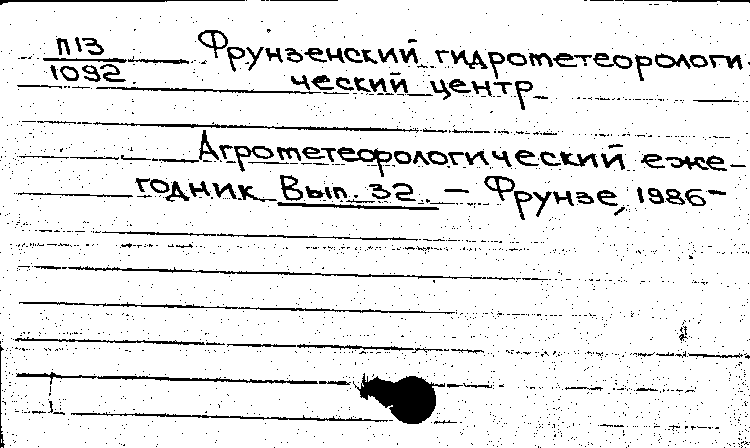 П13 Фрунзенский гидрометеорологи-
1092 ческий центр
Агрометеорологический еже-
годник Вып. 32. – Фрунзе, 1986–